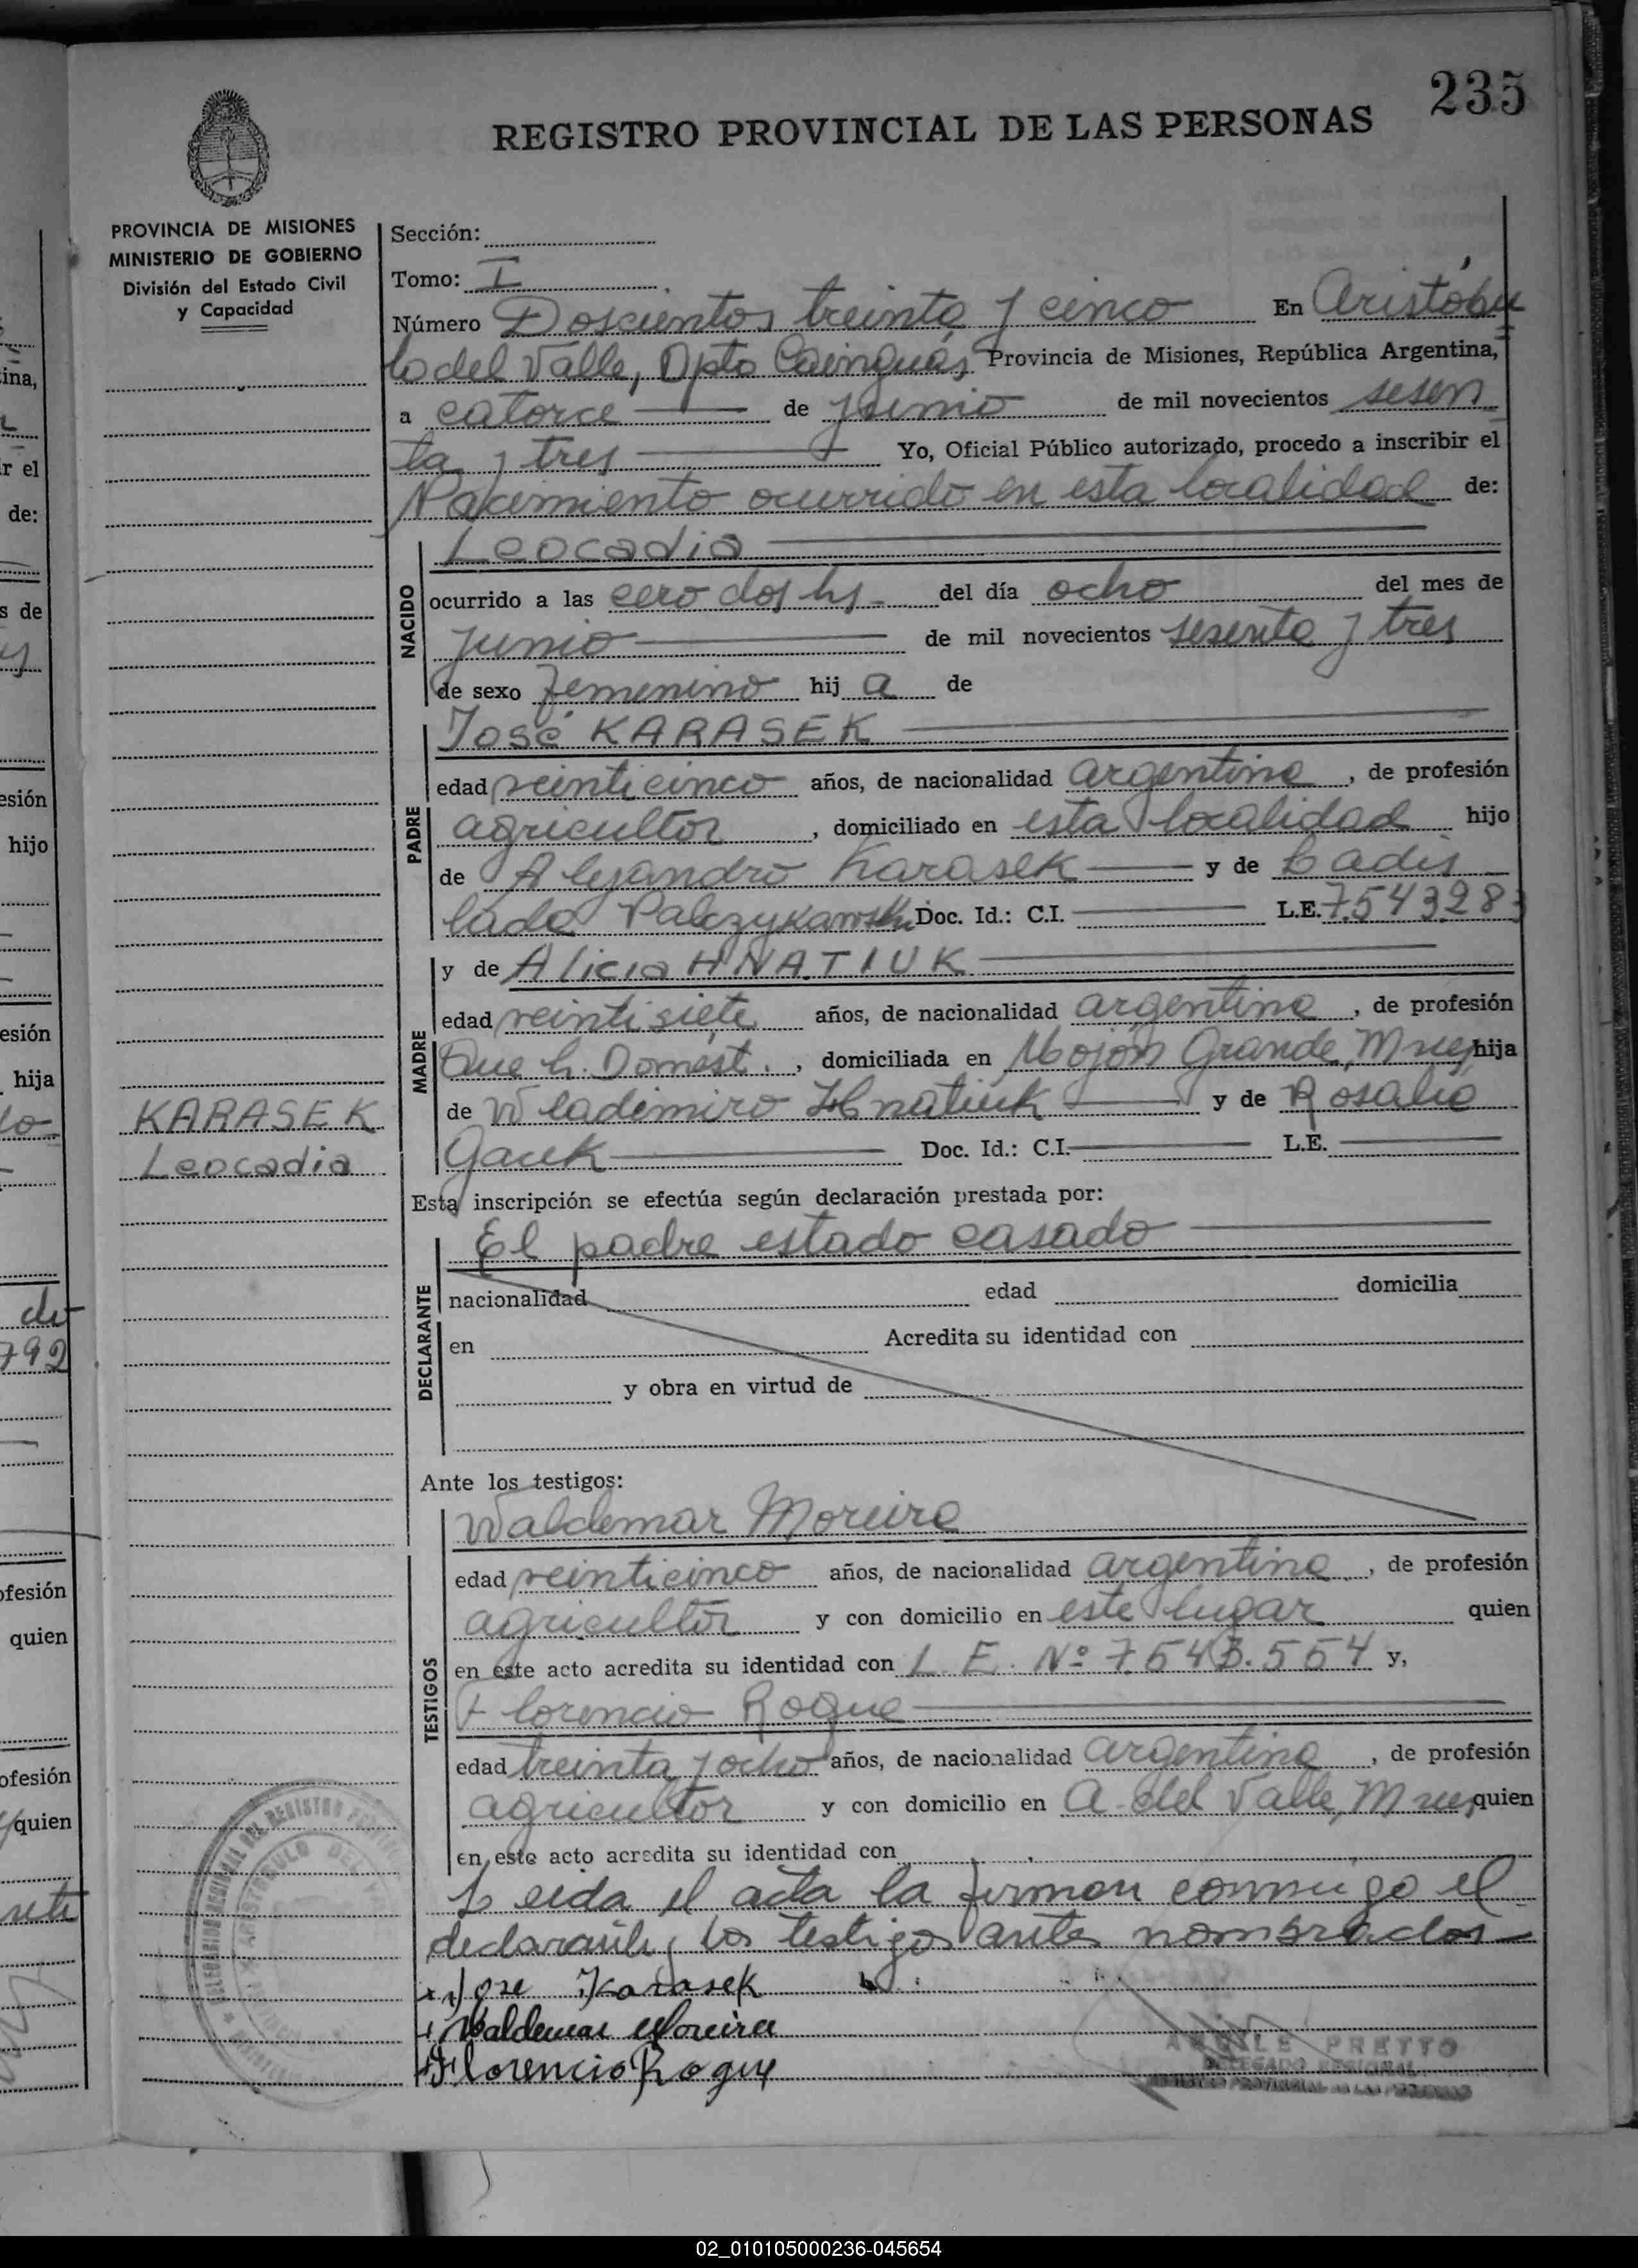 235
REGISTRO PROVINCIAL DE LAS PERSONAS
PROVINCIA DE MISIONES
MINISTERIO DE GOBIERNO
División del Estado Civil
y Capacidad
Sección:
Tomo: I
Número Doscientos treinta y cinco En Aristóbu
lo del Valle, Dpto Cainguás, Provincia de Misiones, República Argentina,
a catorce de junio de mil novecientos sesen
ta y tres Yo, Oficial Público autorizado, procedo a inscribir el
Nacimiento ocurrido en esta localidad de:
NACIDO
Leocadia
ocurrido a las cero dos hs. del día ocho del mes de
junio de mil novecientos sesenta y tres
de sexo femenino hij a de
PADRE
José KARASEK
edad veinticinco años, de nacionalidad argentina, de profesión
agricultor, domiciliado en esta localidad hijo
de Alejandro Karasek y de Ladis
lada Palczykawski Doc. Id.: C.I. L.E. 7.543283
MADRE
y de Alicia HNATIUK
edad veintisiete años, de nacionalidad argentina, de profesión
Que h. Domést., domiciliada en Mojón Grande, Mnes, hija
de Wladimiro Hnatiuk y de Rosalia
Gauk Doc. Id.: C.I. L.E.
KARASEK
Leocadia
Esta inscripción se efectúa según declaración prestada por:
DECLARANTE
El padre estado casado
nacionalidad edad domicilia
en Acredita su identidad con
y obra en virtud de
Ante los testigos:
TESTIGOS
Waldemar Moreira
edad veinticinco años, de nacionalidad argentina, de profesión
agricultor y con domicilio en este lugar quien
en este acto acredita su identidad con L. E. Nº 7.543.554 y,
Florencio Roque
edad treinta y ocho años, de nacionalidad argentina, de profesión
agricultor y con domicilio en A. del Valle, Mnes, quien
en este acto acredita su identidad con
Leida el acta la firman conmigo el
declarante y los testigos antes nombrados
Jose Karasek
Waldemar Moreira
Florencio Roque
PRETTO
DELEGADO REGIONAL
02_010105000236-045654